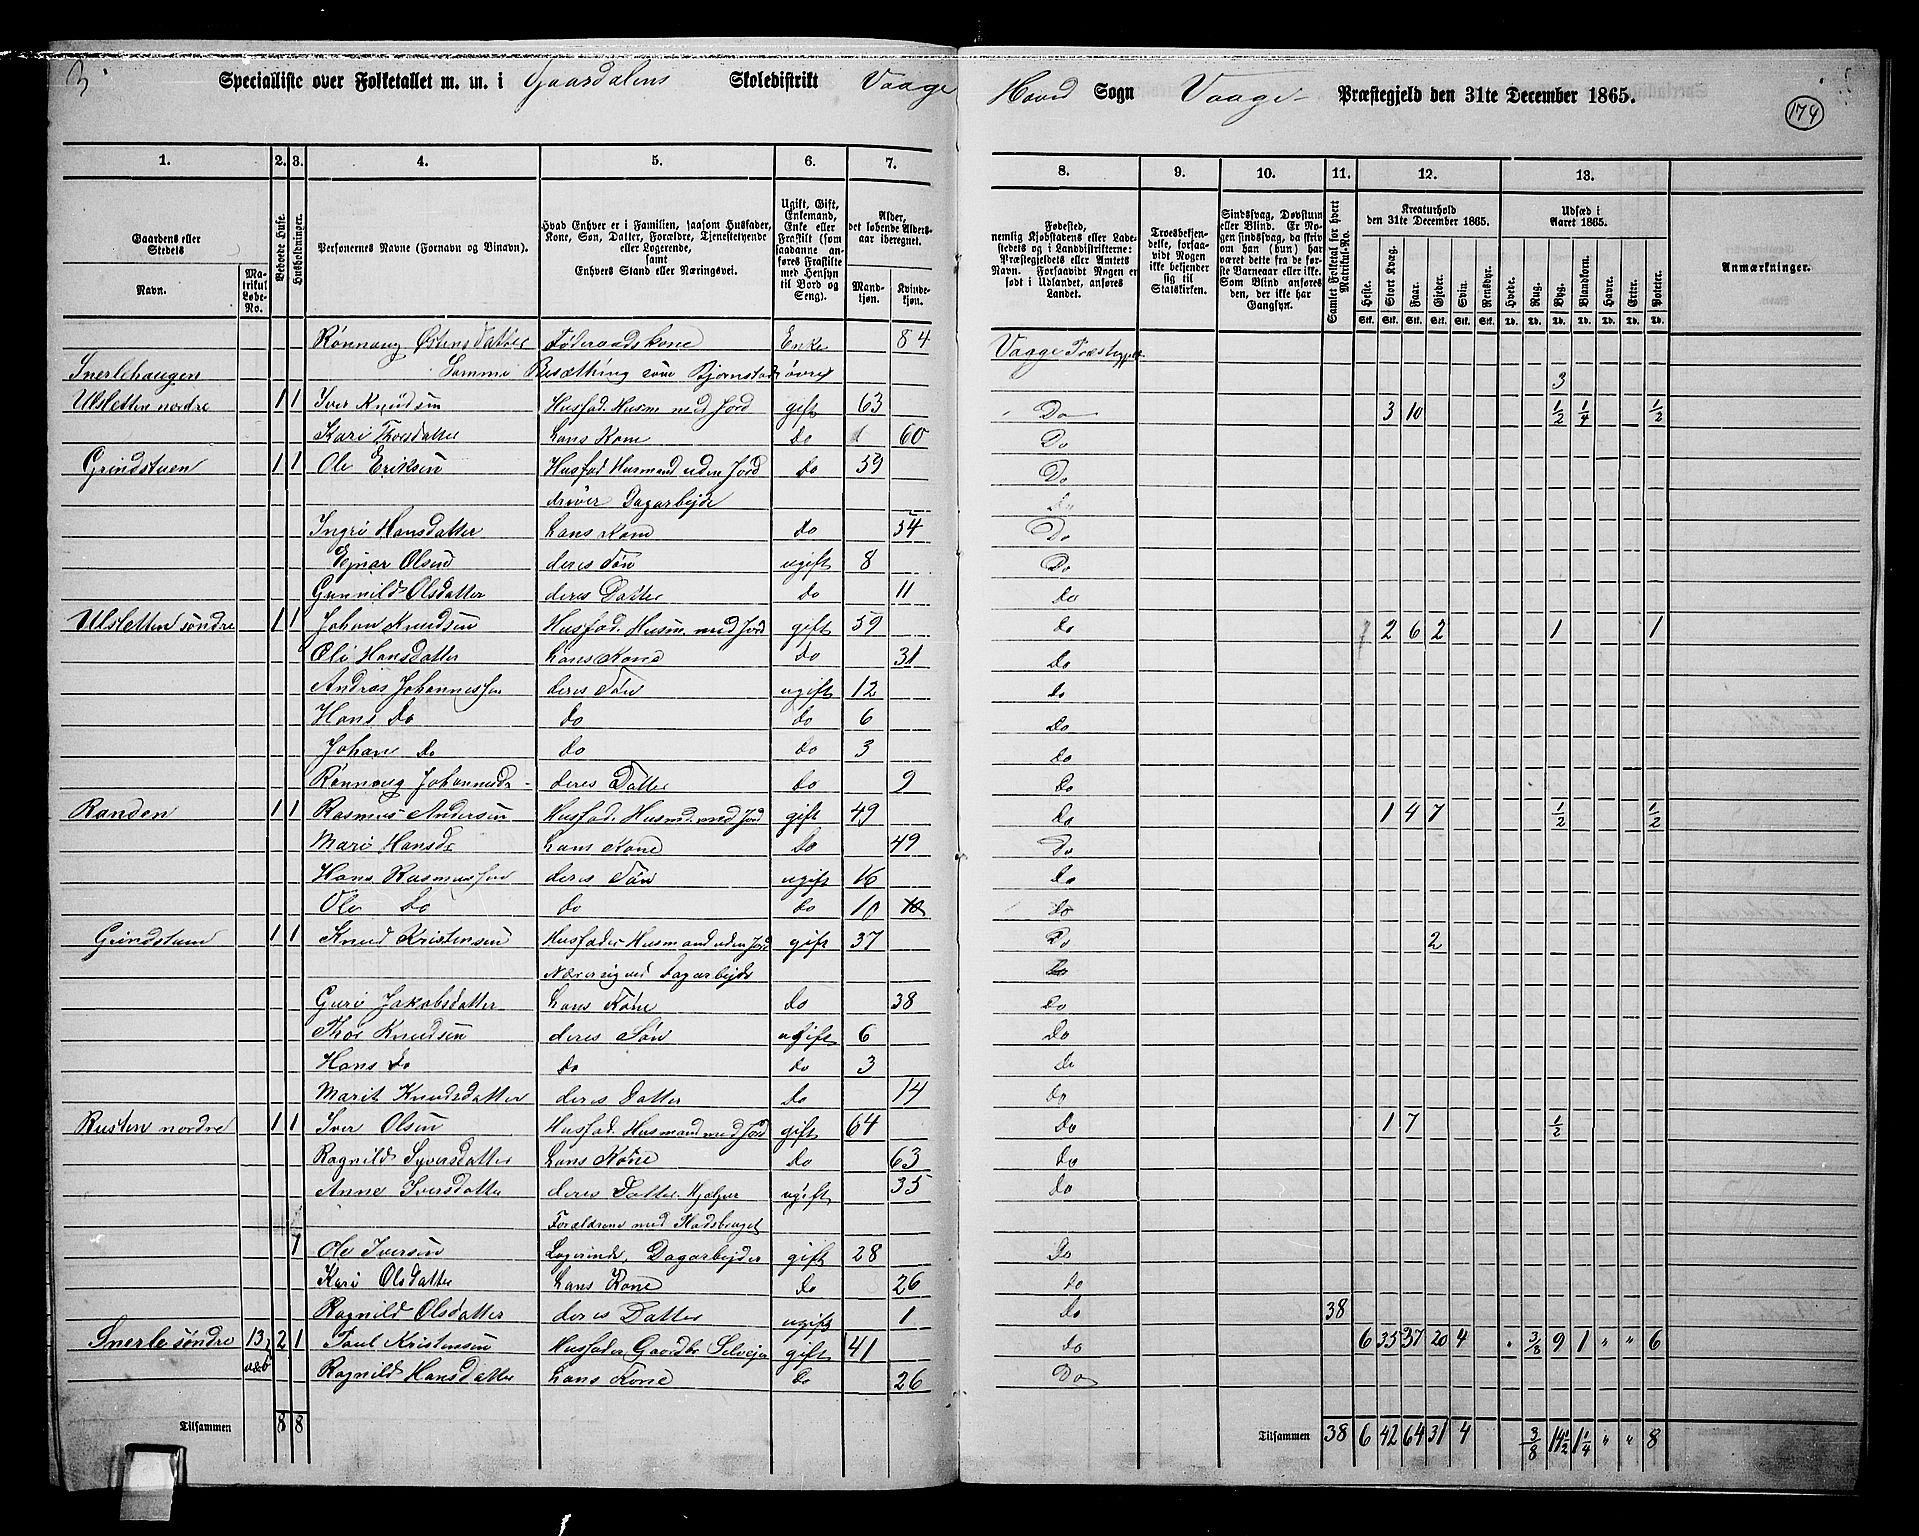 3 Specialliste over Folketallet m. m. i Gaardalens Skoledistrikt Vaage Hoved Sogn Vaage Præstegjeld den 31te December 1865.
174
1. 2. 3. 4. 5. 6. 7. 8. 9. 10. 11. 12. 13.
Gaardens eller Stedets
Navn.
Matrikul Løbe-No.
Beboede Huse.
Husholdninger.
Personernes Navne (Fornavn og Binavn).
Hvad Enhver er i Familien, saasom Husfader, Kone, Søn, Datter, Forældre, Tjenestetyende eller Logerende, samt Enhvers Stand eller Næringsvei.
Ugift, Gift, Enkemand, Enke eller Fraskilt (som saadanne anføres Fraskilte med Hensyn til Bord og Seng).
Alder, det løbende Alders-aar iberegnet.
Mandkjøn. Kvindekjøn.
Fødested, nemlig Kjøbstadens eller Ladestedets og i Landdistrikterne: Præstegjeldets eller Amtets Navn. Forsaavidt Nogen er født i Udlandet, anføres Landet.
Troesbekjendelse, forsaavidt Nogen ikke bekjender sig til Statskirken.
Sindssvag, Døvstum eller Blind. Er Nogen sindssvag, da skrives om han (hun) har været dette fra de første Barneaar eller ikke. Som Blind anføres den, der ikke har Gangsyn.
Samlet Folketal for hvert Matrikul-No.
Kreaturhold den 31te December 1865.
Heste. Stort Kvæg. Faar. Gjeder. Svin. Rensdyr.
Udsæd i Aaret 1865.
Hvede. Rug. Byg. Blandkorn. Havre. Erter. Poteter.
Anmærkninger.
Rønnaug Østensdatter Føderaadskone Enke 84 Vaage Præstegjeld
Snerlehaugen Samme Besætning som Bjørnstad øvre 3
Ulsletten nordre 1 1 Iver Knudsen Husfad. Husm. med Jord gift 63 Do 3 10 1/2 1/4 1/2
Kari Thorsdatter hans Kone do 60 Do
Grindstuen 1 1 Ole Eriksen Husfad Husmand uden Jord do 59 Do
drøver Dagarbejde do
Ingri Hansdatter hans Kone do 54 Do
Ejnar Olsen deres Søn ugift 8 Do
Gunnild Olsdatter deres Datter do 11 do
Ulsletten søndre 1 1 Johan Knudsen Husfad. Husm. med Jord gift 59 do 2 6 2 1 1
Oli Hansdatter hans Kone do 31 do
Andras Johannesen deres Søn ugift 12 do
Hans do do do 6 do
Johan do do do 3 do
Rønnaug Johannesd. deres Datter do 9 do
Randen 1 1 Rasmus Andersen Husfad. Husmd. med Jord gift 49 do 1 4 7 1/2 1/2
Mari Hansdr hans Kone do 49 Do
Hans Rasmussen deres Søn ugift 16 do
Ole do do do 10 10 do
Grindstuen 1 1 Knud Kristensen Husfader Husmand uden Jord gift 37 Do 2
Nærer sig ved Dagarbejde do
Guri Jakobsdatter hans Kone do 38 do
Thor Knudsen deres Søn ugift 6 do
Hans do do do 3 do
Marit Knudsdatter deres Datter do 14 do
Rusten nordre 1 1 Iver Olsen Husfad. Husmand med Jord gift 64 do 1 7 1/2
Ragnild Syversdatter hans Kone do 63 do
Anne Iversdatter deres Datter. Hjelper ugift 35 do
Forældrene med Pladsbruget
1 Ole Iversen Logerende, Dagarbejder gift 28 Do
Kari Olsdatter hans Kone do 26 do
Ragnild Olsdatter deres Datter ugift 1 do 38
Snerle søndre 13 a&b 2 1 Paul Kristensen Husfader Gaardbr. Selvejer gift 41 do 6 35 37 20 4 " 3/8 9 1 " " 6
Ragnild Hansdatter hans Kone do 26 Do
Tilsammen 8 8
Tilsammen 38 6 42 64 31 4 3/8 14 1/2 1 1/4 " " 8